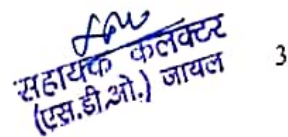 सहायक कलक्टर
(एस.डी.ओ.) जायल
3